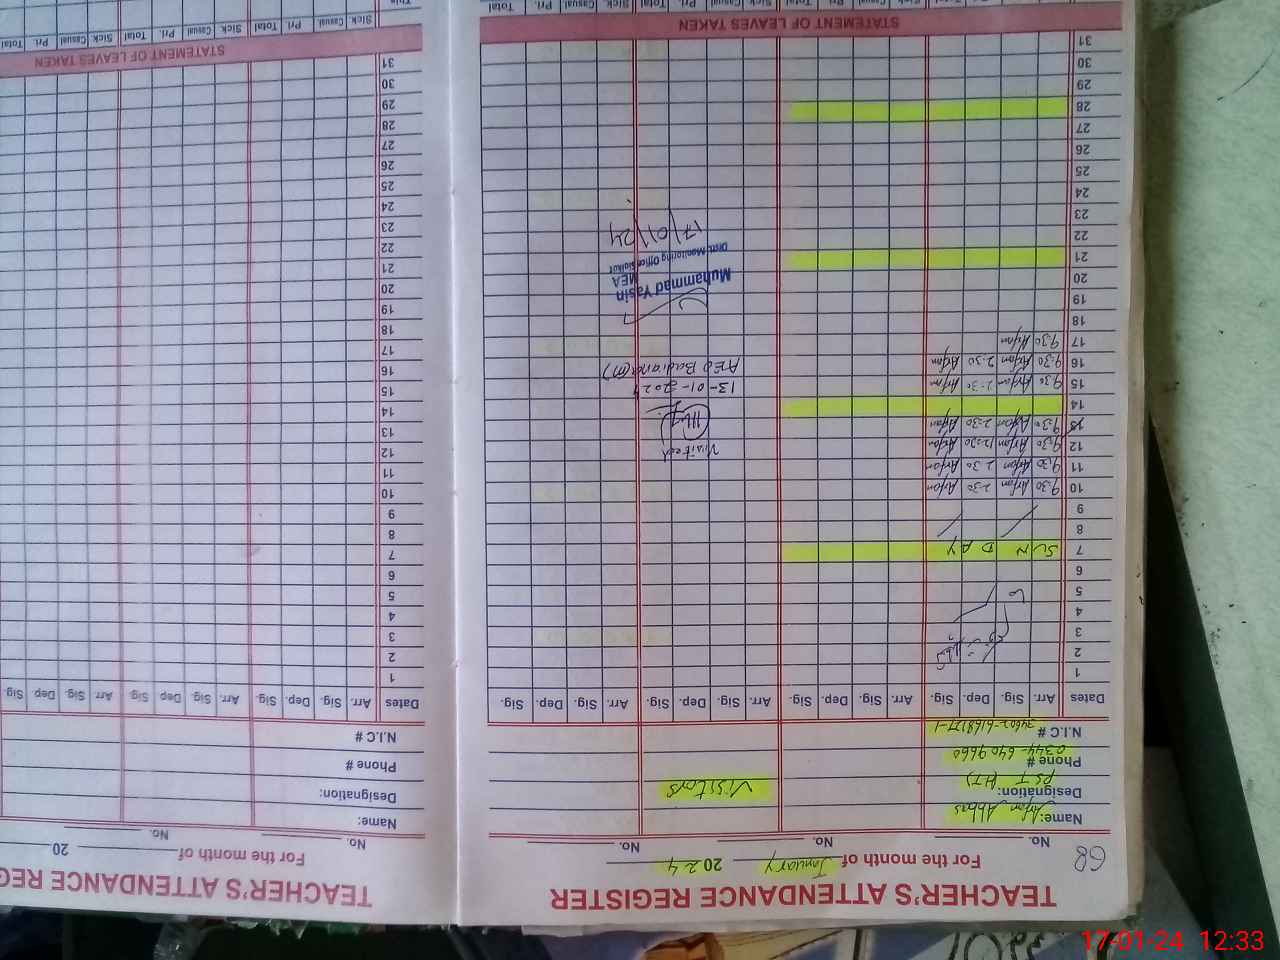 TEACHER'S ATTENDANCE REGISTER
68
For the month of January 2024
No. No.
Name: Arfan Abbas
Designation: PST (HT)
Visitors
Phone # 0344-6409660
N.I.C # 34602-6168127-1
Dates Arr. Sig. Dep. Sig. Arr. Sig. Dep. Sig. Arr. Sig. Dep. Sig. Arr. Sig. Dep. Sig.
1
2
3
4
5
6
7 SUN DAY
8
9
10 9:30 Arfan 2:30 Arfan
11 9:30 Arfan 2:30 Arfan
12 9:30 Arfan 12:30 Arfan
13 9:30 Arfan 2:30 Arfan
14
15 9:30 Arfan 2:30 Arfan
16 9:30 Arfan 2:30 Arfan
17 9:30 Arfan
18
19
20
21
22
23
24
25
26
27
28
29
30
31
Visited
13-01-2024
AEO Badiana (M)
Muhammad Yasin
MEA
Distt. Monitoring Officer Sialkot
17/01/24
STATEMENT OF LEAVES TAKEN
Sick Casual Pri. Total
TEACHER'S ATTENDANCE REG
For the month of 20
No. No.
Name:
Designation:
Phone #
N.I.C #
Dates Arr. Sig. Dep. Sig. Arr. Sig. Dep. Sig. Arr. Sig. Dep. Sig.
1
2
3
4
5
6
7
8
9
10
11
12
13
14
15
16
17
18
19
20
21
22
23
24
25
26
27
28
29
30
31
STATEMENT OF LEAVES TAKEN
Sick Casual Pri. Total Sick Casual Pri. Total Sick Casual Pri. Total
This
17-01-24 12:33